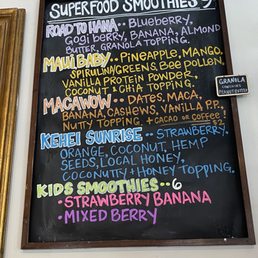 SUPERFOOD SMOOTHIES 9
ROAD TO HANA·· BLUEBERRY,
GOGI BERRY, BANANA, ALMOND
BUTTER, GRANOLA TOPPING.
MAUI BABY·· PINEAPPLE, MANGO,
SPIRULINA/GREENS, BEE POLLEN,
VANILLA PROTEIN POWDER,
COCONUT & CHIA TOPPING.
MACAWOW·· DATES, MACA,
BANANA, CASHEWS, VANILLA P.P.
NUTTY TOPPING. + CACAO OR COFFEE! $2
KEHEI SUNRISE·· STRAWBERRY,
ORANGE, COCONUT, HEMP
SEEDS, LOCAL HONEY,
COCONUTTY + HONEY TOPPING.
KIDS SMOOTHIES·· 6
• STRAWBERRY BANANA
• MIXED BERRY
GRANOLA